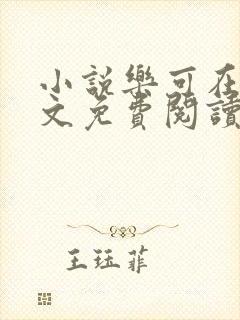 小說樂可在
文免費閱讀
王珏菲